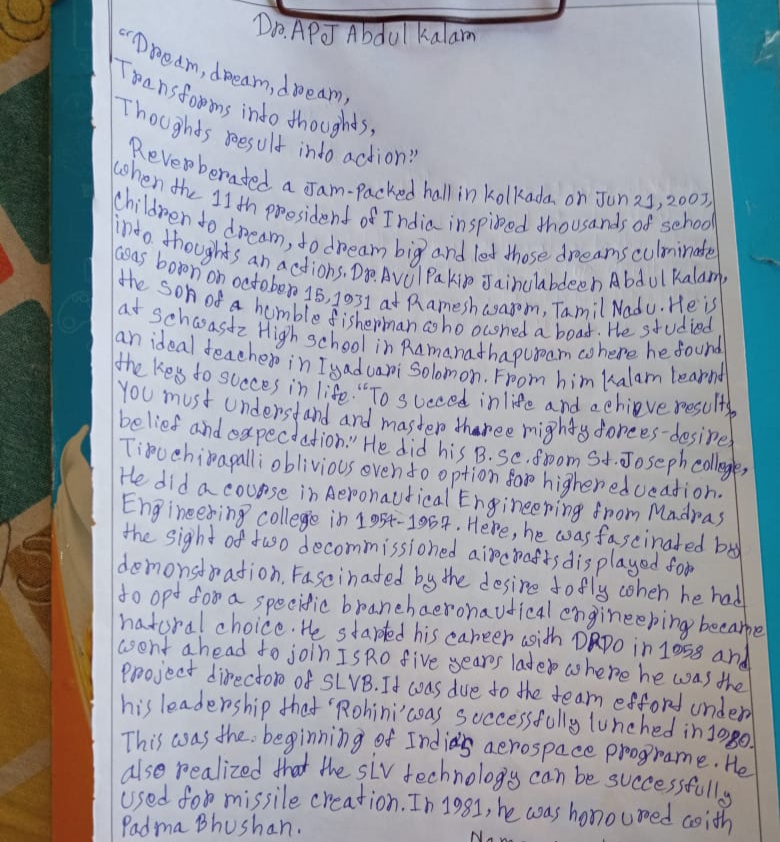 Dr. APJ Abdul Kalam
"Dream, dream, dream,
Transforms into thoughts,
Thoughts result into action"
Reverberated a Jam-Packed hall in Kolkada on Jun 21, 2007,
when the 11th president of India inspired thousands of school
children to dream, to dream big and let those dreams culminate
into thoughts an actions. Dr. Avul Pakir Jainulabdeen Abdul Kalam,
was born on october 15, 1931 at Rameshwarm, Tamil Nadu. He is
the son of a humble fisherman who owned a boat. He studied
at schwastz High school in Ramanathapuram where he found
an ideal teacher in Iyaduari Solomon. From him Kalam learnt
the key to succes in life. "To succed in life and achieve results,
You must understand and master three mighty forces - desire,
belief and expectation." He did his B.Sc. from St. Joseph college,
Tiruchirapalli oblivious even to option for higher education.
He did a course in Aeronautical Engineering from Madras
Engineering college in 1954-1957. Here, he was fascinated by
the sight of two decommissioned aircrafts displayed for
demonstration. Fascinated by the desire to fly when he had
to opt for a specific branch aeronautical engineering became
natural choice. He started his career with DRDO in 1958 and
went ahead to join ISRO five years later where he was the
Project director of SLVB. It was due to the team effort under
his leadership that 'Rohini' was successfully lunched in 1980.
This was the beginning of India's aerospace programe. He
also realized that the SLV technology can be successfully
Used for missile creation. In 1981, he was honoured with
Padma Bhushan.